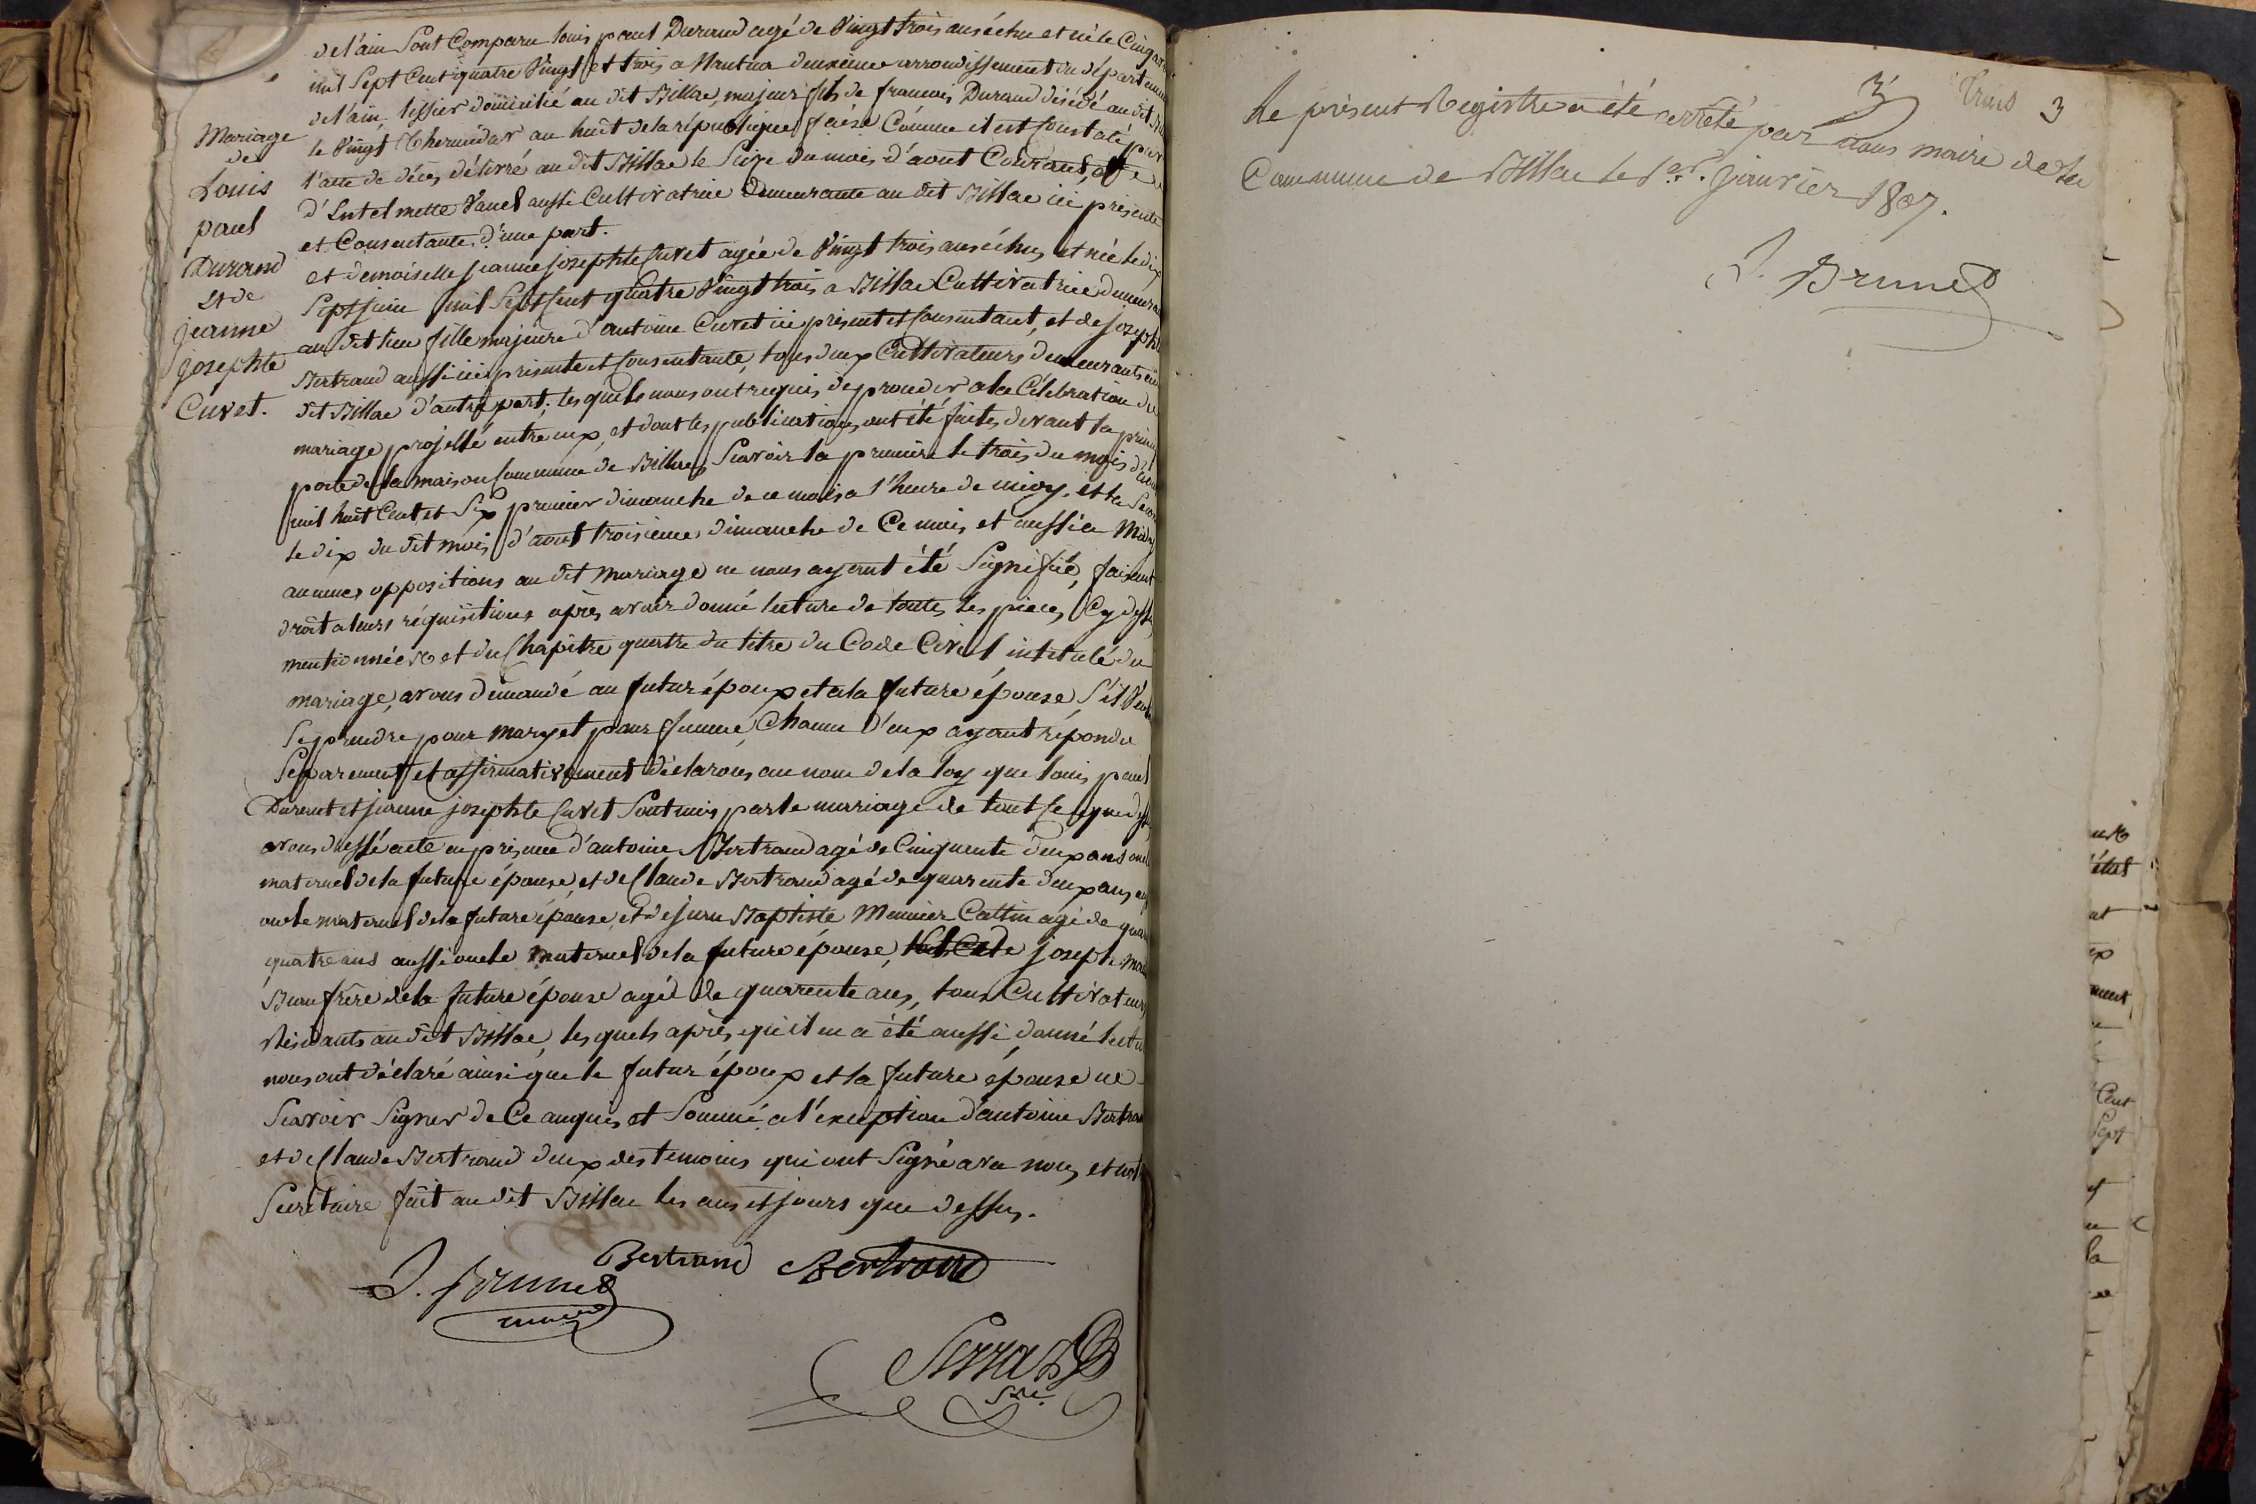 de l'ain sont Comparu louis paul Durand agé de Vingt trois ans échu et né le Cinq
mil Sept Cent quatre Vingt et trois a Nantua deuxieme arrondissement du départem
de l'ain, tissier domicilié au dit Billac, majeur fils de francois Durand décédé au dit
le Vingt Thermidor an huit de la république comme il est Constaté par
l'acte de décès délivré au dit Billac le Seize du mois d'aout Courant, et de
Vauel aussi Cultivatrice demeurante au dit Billac ici présente
et Consentante, d'une part.
et demoiselle jeanne josephte Curet agée de Vingt trois ans échus et née le dix
Sept juin mil Sept Cent quatre Vingt trois a Billac Cultivatrice demeurant
au dit lieu fille majeure d'antoine Curet ici présent et Consentant, et de joseph
Bertrand aussi ici présente et Consentante, tous deux Cultivateurs demeurants
dit Billac d'autre part; les quels nous ont requis de proceder a la Célébration du
mariage projetté entre eux, et dont les publications ont été faites devant la princi
porte de la maison Commune de Billac, Scavoir la premiere le trois du mois d'aout
mil huit Cent et Six premier dimanche de ce mois a l'heure de midy, et la Secon
le dix du dit mois d'aout troisieme dimanche de Ce mois et aussi a Midy
aucunes oppositions au dit mariage ne nous ayant été Signifiée, faisant
droit a leurs réquisitions après avoir donné lecture de toutes les pieces Cy dess
mentionnées et du Chapitre quatre du titre du Code Civil intitulé du
mariage, avons demandé au futur époux et a la future épouse, S'il Veul
Se prendre pour mary et pour femme, Chacun D'eux ayant répondu
Séparement et affirmativement déclarons au nom de la loy que louis paul
Durant et jeanne josephte Curet Sont unis par le mariage de tout Ce que dess
avons dressé acte en présence d'antoine Bertrand agé de Cinquante deux ans oncle
maternel de la future épouse et de Claude Bertrand agé de quarente deux ans, aussi
oncle maternel de la future épouse, et de jean Baptiste Meunier Cattin agé de quar
quatre ans aussi oncle maternel de la future épouse, joseph
Beau frère de la future épouse agé de quarente ans, tous Cultivateurs
Résidants au dit Billac, les quels après qu'il en a été aussi donné lectu
nous ont déclaré ainsi que le futur époux et la future épouse ne
Scavoir Signer de Ce enquis et Sommé, a l'exception d'antoine Bertran
et de Claude Bertrand deux des temoins qui ont Signé avec nous et not
Secrétaire fait au dit Billac les ans et jours que dessus.
Mariage
de
Louis
paul
Durand
et de
jeanne
josephte
Curet.
Bertrand Bertrand
J. Brunet
maire
3 3
Trois
Le présent Registre a été arrêté par nous maire de la
Commune de Billac le 1er. janvier 1807.
J. Brunet
Cent
Sept
la